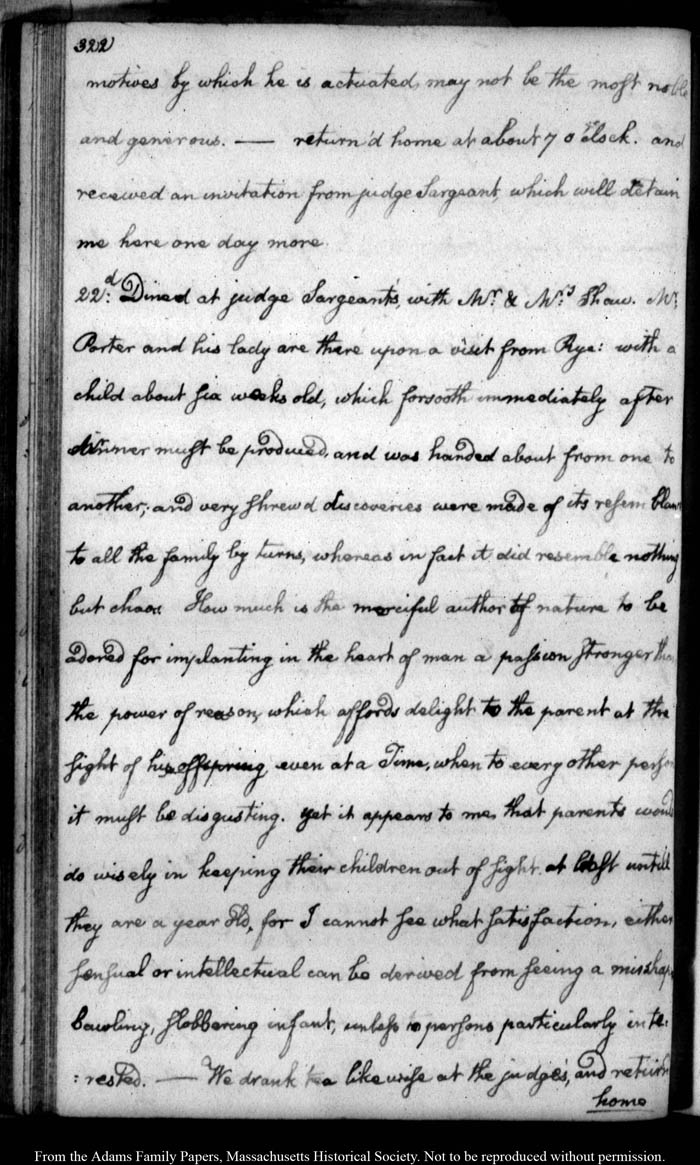 322
motives by which he is actuated, may not be the most noble
and generous. — return'd home at about 7 o'clock. and
received an invitation from judge Sargeant, which will detain
me here one day more.
22d: Dined at judge Sargeant's, with Mr. & Mrs. Shaw. Mr.
Porter and his lady are there upon a visit from Rye: with a
child about six weeks old, which forsooth immediately after
dinner must be produced, and was handed about from one to
another; and very shrewd discoveries were made of its resemblance
to all the family by turns, whereas in fact it did resemble nothing
but chaos. How much is the merciful author of nature to be
adored for implanting in the heart of man a passion stronger than
the power of reason, which affords delight to the parent at the
sight of his offspring even at a Time, when to every other person
it must be disgusting. yet it appears to me, that parents would
do wisely in keeping their children out of sight at least untill
they are a year old, for I cannot see what satisfaction, either
sensual or intellectual can be derived from seeing a misshapen
bawling, slobbering infant, unless to persons particularly inte:
:rested. — We drank tea likewise at the judge's, and return'd
home
From the Adams Family Papers, Massachusetts Historical Society. Not to be reproduced without permission.